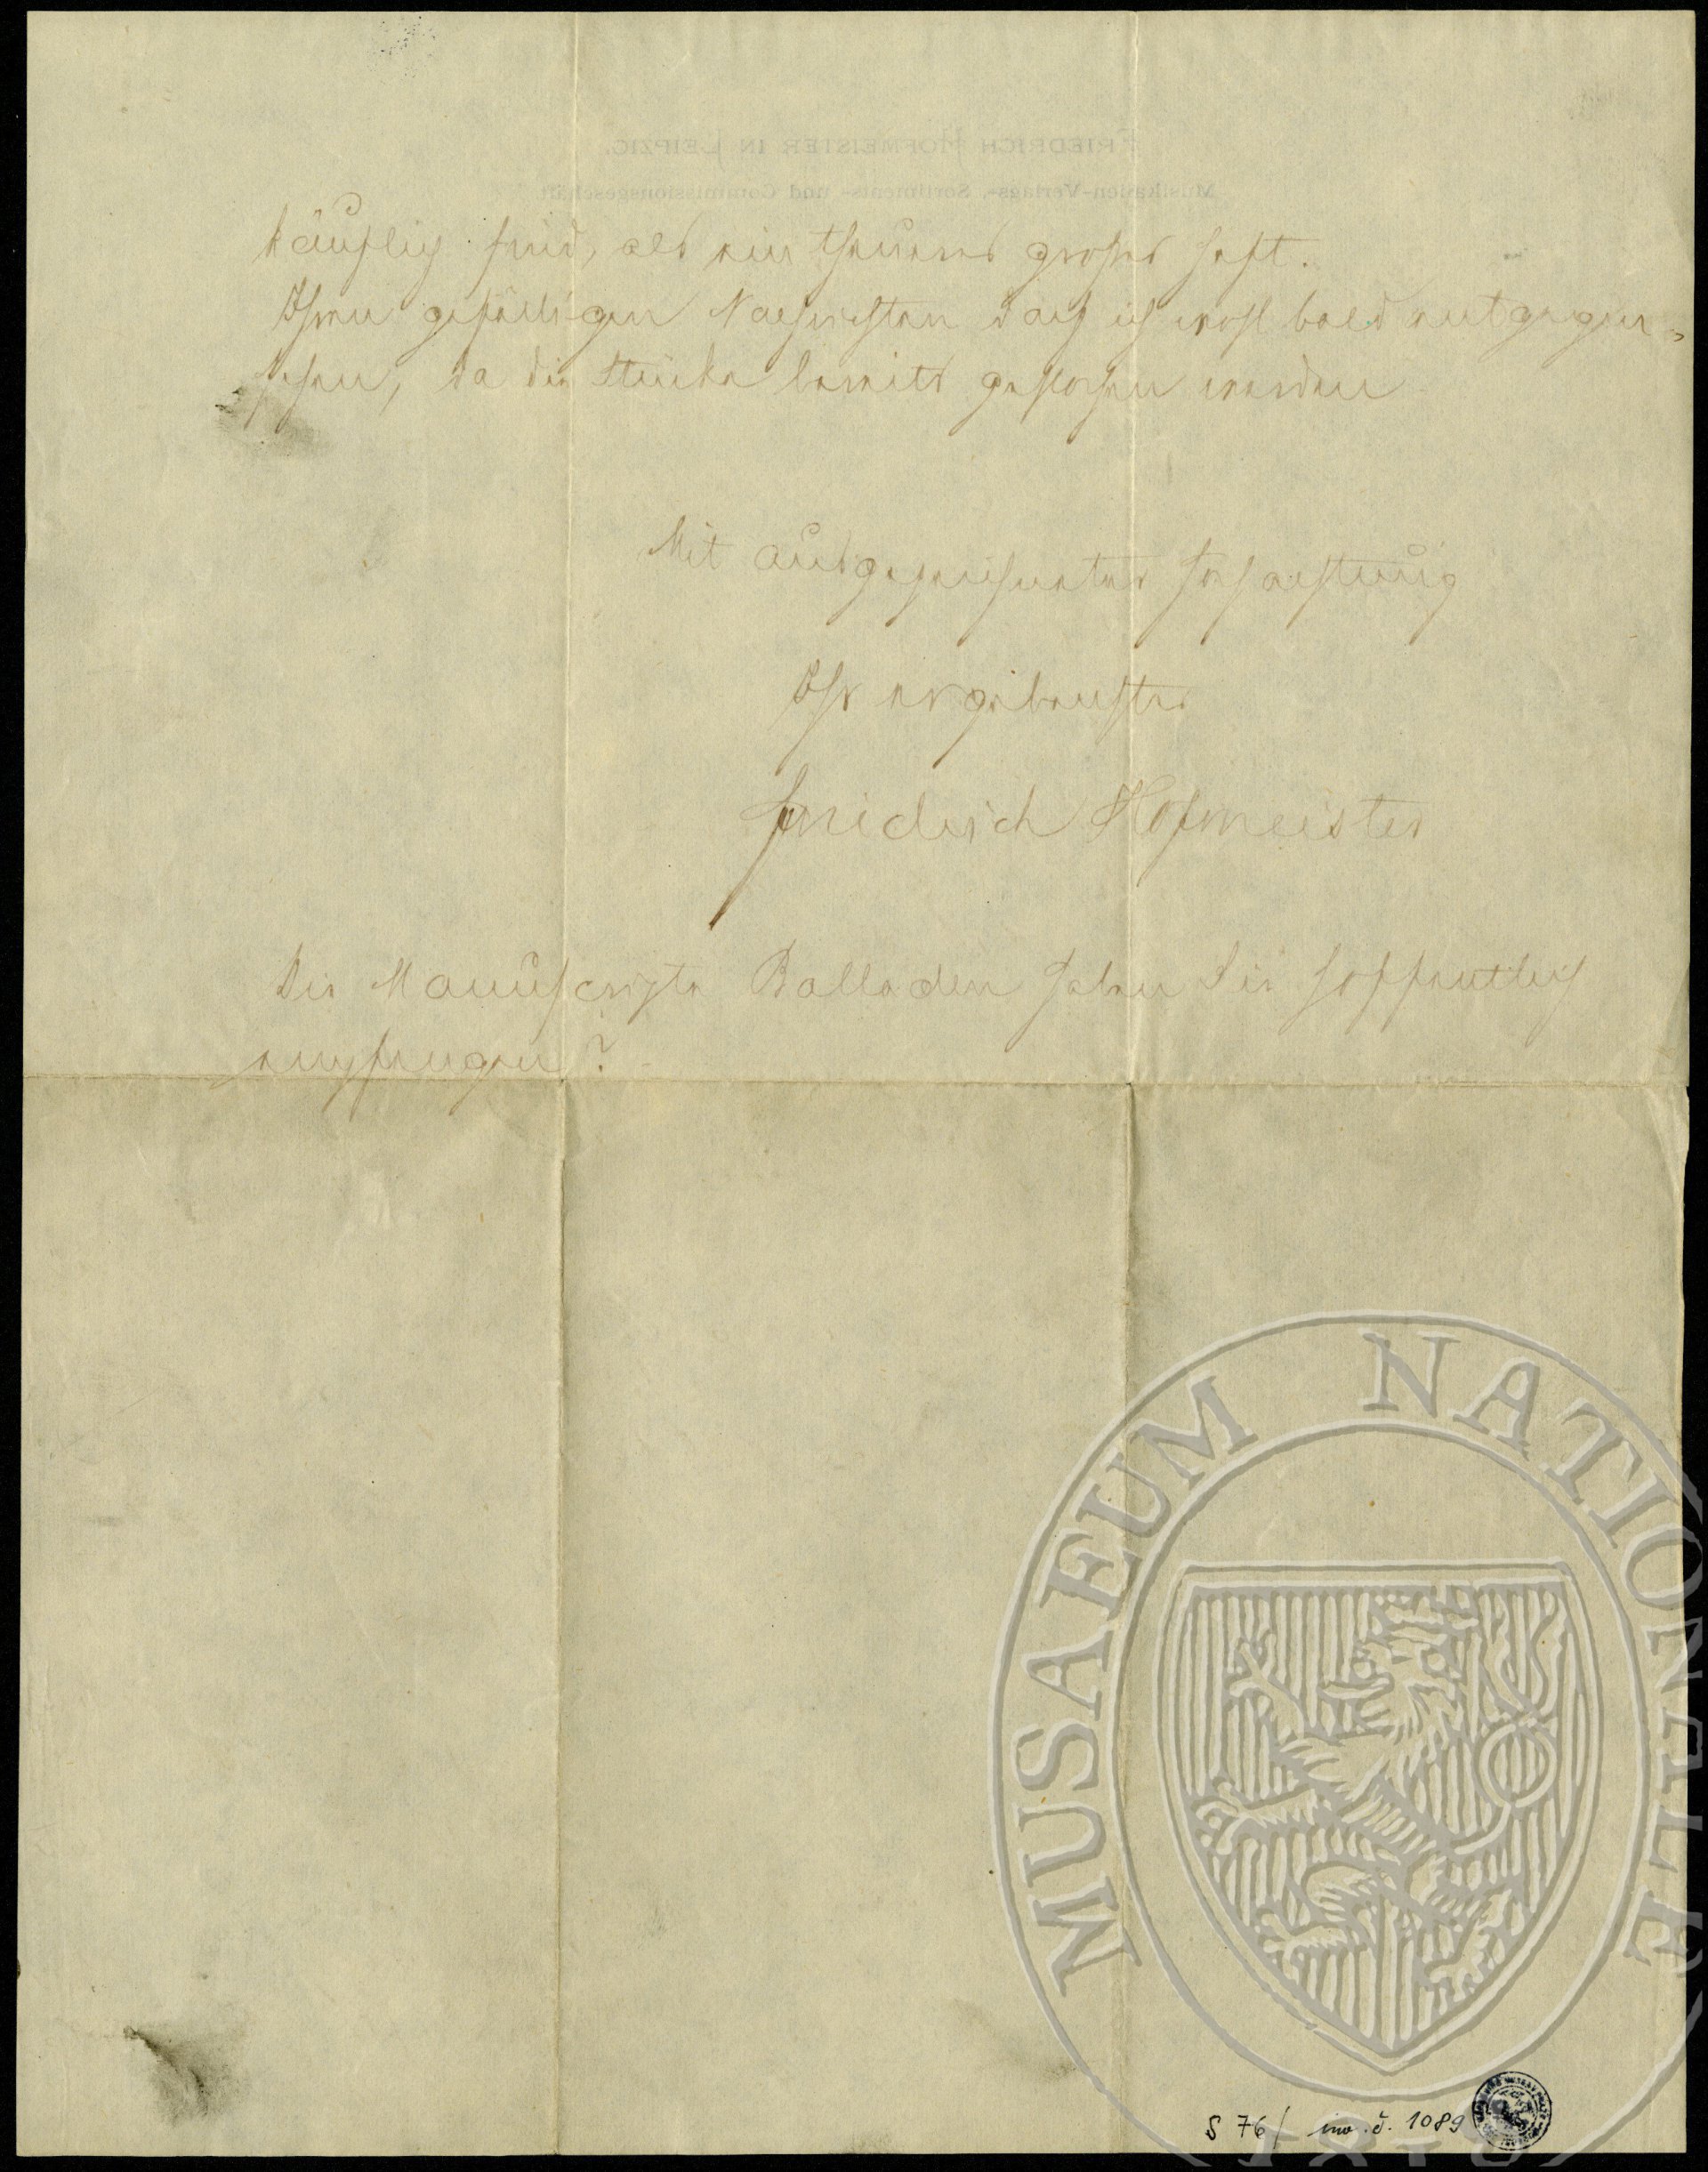 FRIEDRICH HOFMEISTER IN LEIPZIG.
Musikalien-Verlags-, Sortiments- und Commissionsgeschäft.
käuflich sind, als ein theueres großes Heft.
Ihren gefälligen Nachrichten darf ich wohl bald entgegen-
sehen, da die Stücke bereits gestochen werden
Mit ausgezeichneter Hochachtung
Ihr ergebenster
Friedrich Hofmeister
Die Manuscripte Balladen haben Sie hoffentlich
empfangen?
MUSAEUM NATIONALE
1818
S 76/ inv. č. 1089